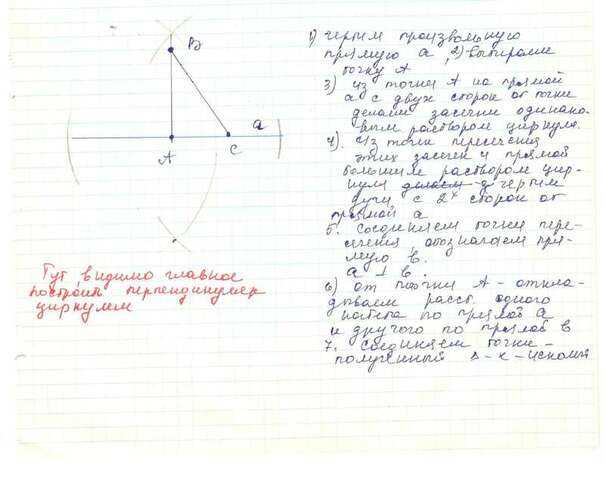 В
А
С
а
1) чертим произвольную
прямую а, 2) выбираем
точку А
3) из точки А на прямой
а с двух сторон от точки
делаем засечки одинако-
вым раствором циркуля.
4). Из точки пересечения
этих засечек и прямой
большим раствором цир-
куля делаем чертим
дуги с 2х сторон от
прямой а
5. Соединяем точки пере-
сечения, обозначаем пря-
мую в.
а ⊥ в.
6) от точки А - откла-
дываем расст. одного
катета по прямой а
и другого по прямой в
7. Соединяем точки -
полученный Δ-к - искомый
Тут, видимо главное
построить перпендикуляр
циркулем